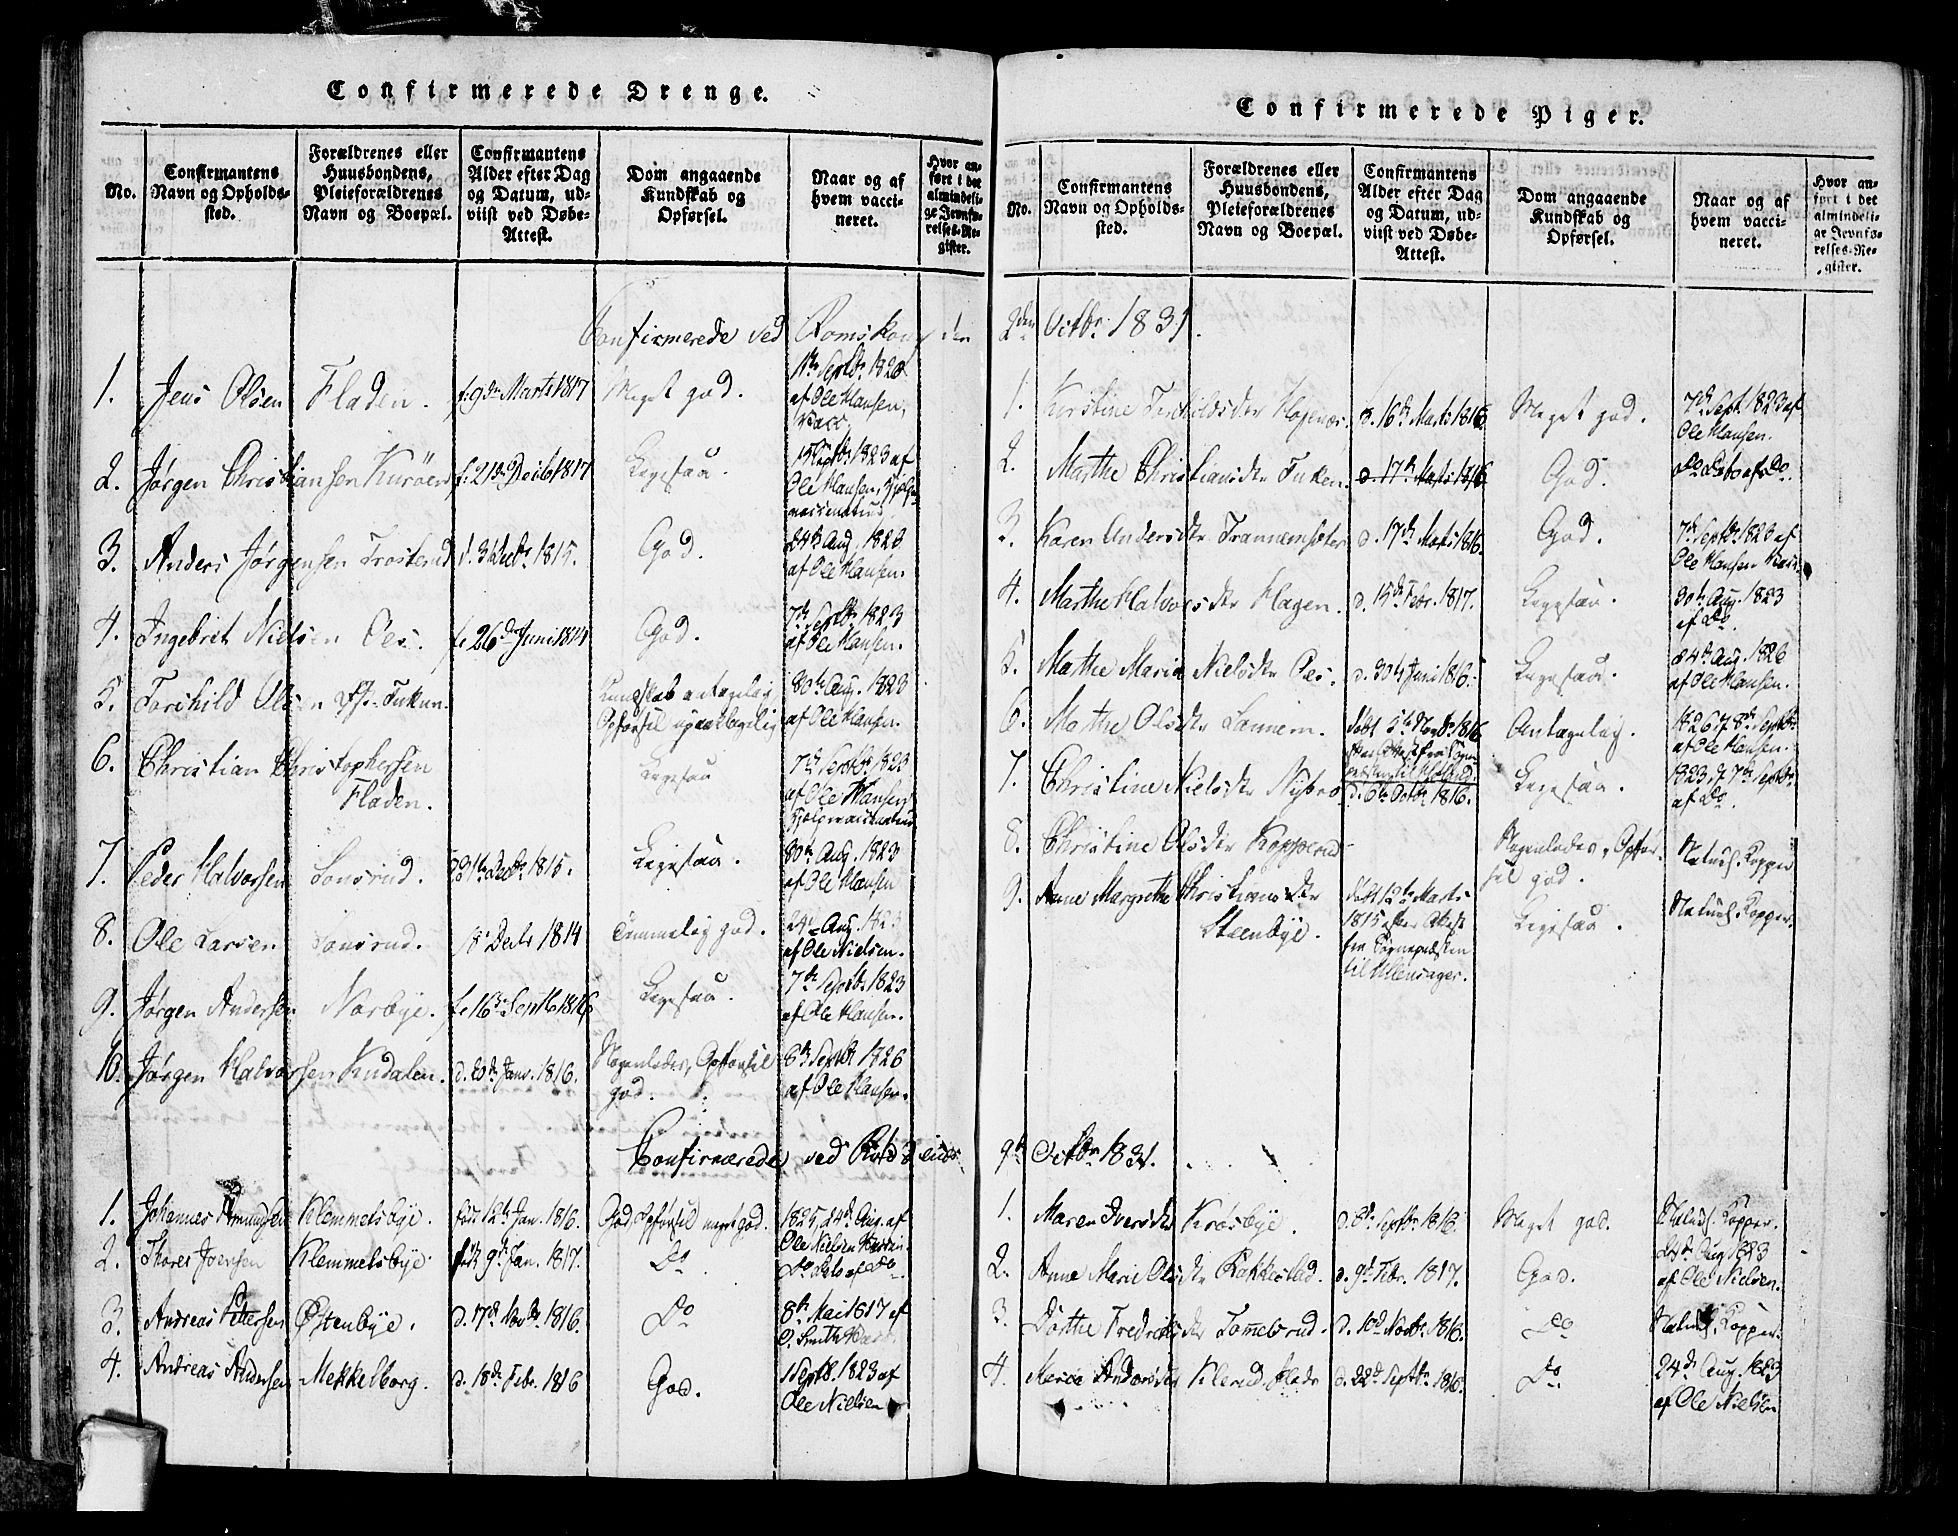 Confirmerede Drenge.
No.
Confirmantens Navn og Opholds-sted.
Forældrenes eller Huusbondens, Pleieforældrenes Navn og Boepæl.
Confirmantens Alder efter Dag og Datum, ud-viist ved Døbe-Attest.
Dom angaaende Kundskab og Opførsel.
Naar og af hvem vacci-neret.
Hvor an-ført i det almindeli-ge Jevnfø-relses-Re-gister.
Confirmerede ved Romskoug den
1. Jens Olsen Fladen. f. 9de Marts 1817 Meget god.
af Ole Hansen,
Vacc.
2. Jørgen Christiansen Kuröen f. 21de Decb 1817 Ligesaa.
Septbr. 1823 af
Ole Hansen,
3. Anders Jørgensen Trosterud d. Decbr. 1815. God. 24de Aug. 1823
af Ole Hansen.
4. Ingebret Nielsen Oes. f. 26de Juni God. 7de Septbr. 1823
af Ole Hansen.
5. Torchild Olsen Pl. Tukun. Kundskab antagelig 30te Aug. 1823
Opførsel upaaklagelig af Ole Hansen.
6. Christian Christophersen Ligesaa 7de Septbr. 1823
Fladen. af Ole Hansen
7. Peder Halvorsen Sonsrud. 31te Decbr. 1815. Ligesaa. 30te Aug. 1823
af Ole Hansen
8. Ole Larsen Sonsrud. 18 Decbr 1814 Temmelig god. 24de Aug.
af Ole Nielsen.
9. Jørgen Andersen Norbye. f. 16de Septb 1816 Ligesaa. 7de Septbr. 1823
af Ole Hansen.
10. Jørgen Halvorsen Kudalen. d. 20de Janv. 1816. Nogenledes, Opførsel 8de Septbr 1826
god. af Ole Hansen.
Confirmerede ved
1. Johannes Amundsen Klemmelsbye. født 12te Jan. 1816. God, Opførsel meget god. 1825, 24de Aug. af
Ole Nielsen
2. Thores Joensen Klemmelsbye. født 9de Jan. 1817. Do. Do Dato af Do.
3. Andreas Pettersen Østenbye. d. 17de Novbr. 1816. Do 8de Mai 1817 af
O. Smith
4. Andreas Andersen Mekkelborg. d. 18de Febr. 1816 God. Septb. 1823 af
Ole Nielsen
Confirmerede Piger.
No.
Confirmantens Navn og Opholds-sted.
Forældrenes eller Huusbondens, Pleieforældrenes Navn og Boepæl.
Confirmantens Alder efter Dag og Datum, ud-viist ved Døbe-Attest.
Dom angaaende Kundskab og Opførsel.
Naar og af hvem vacci-neret.
Hvor an-ført i det almindeli-ge Jevnfø-relses-Re-gister.
2den Octbr. 1831.
1. Kirstine d. 16de Marts 1816 Meget god. 7de Sept. 1823 af
Ole Hansen.
2. Marthe Christiansdtr Tuken. d. 17de Marts 1816 God. Do Dato af Do.
3. Karen Andersdtr Trannemsæter d. 17de Marts 1816. God. 7de Septbr. 1823 af
Ole Hansen
4. Marthe Halvorsdtr Hagen. d. 15de Febr. 1817. Ligesaa. 30te Aug. 1823
af Do.
5. Marthe Maria Nielsdtr Oes. d. 30te Juni 1816. Ligesaa. 24de Aug. 1826
af Ole Hansen.
6. Marthe Olsdtr Lannem. døbt 5te Novbr. 1816 Antagelig. 1826, 8de Septbr
af Ole Hansen.
7. Christine Nielsdtr Nybro d. 6te Octbr. 1816. Ligesaa. 1823, d. 7de Septbr
af Do.
8. Christine Olsdtr Kopperud Nogenledes, Opfør-sel god. Naturl. Kopper
9. Anne Margrethe Christiansdtr døbt 12te Marts Ligesaa. Naturl. Kopper.
Steenbye. 1815 efter Attest
fra Sognepræsten
til Ullensager.
9de Octbr. 1831.
1. Maren Iversdtr Krosbye. d. 8de Septbr. 1816 Meget god. Naturl. Kopper.
2. Anne Marie Olsdtr Rakkestad. d. 9de Febr. 1817. God. 24de Aug 1823
af Ole Nielsen.
3. Dorthe Fredriksdtr Tomelsrud. d. 10de Novbr. 1816. Do Naturl. Kopper.
4. Maria Andersdtr d. 22de Septbr. 1816. Do. 24de Aug. 1823
af Ole Nielsen